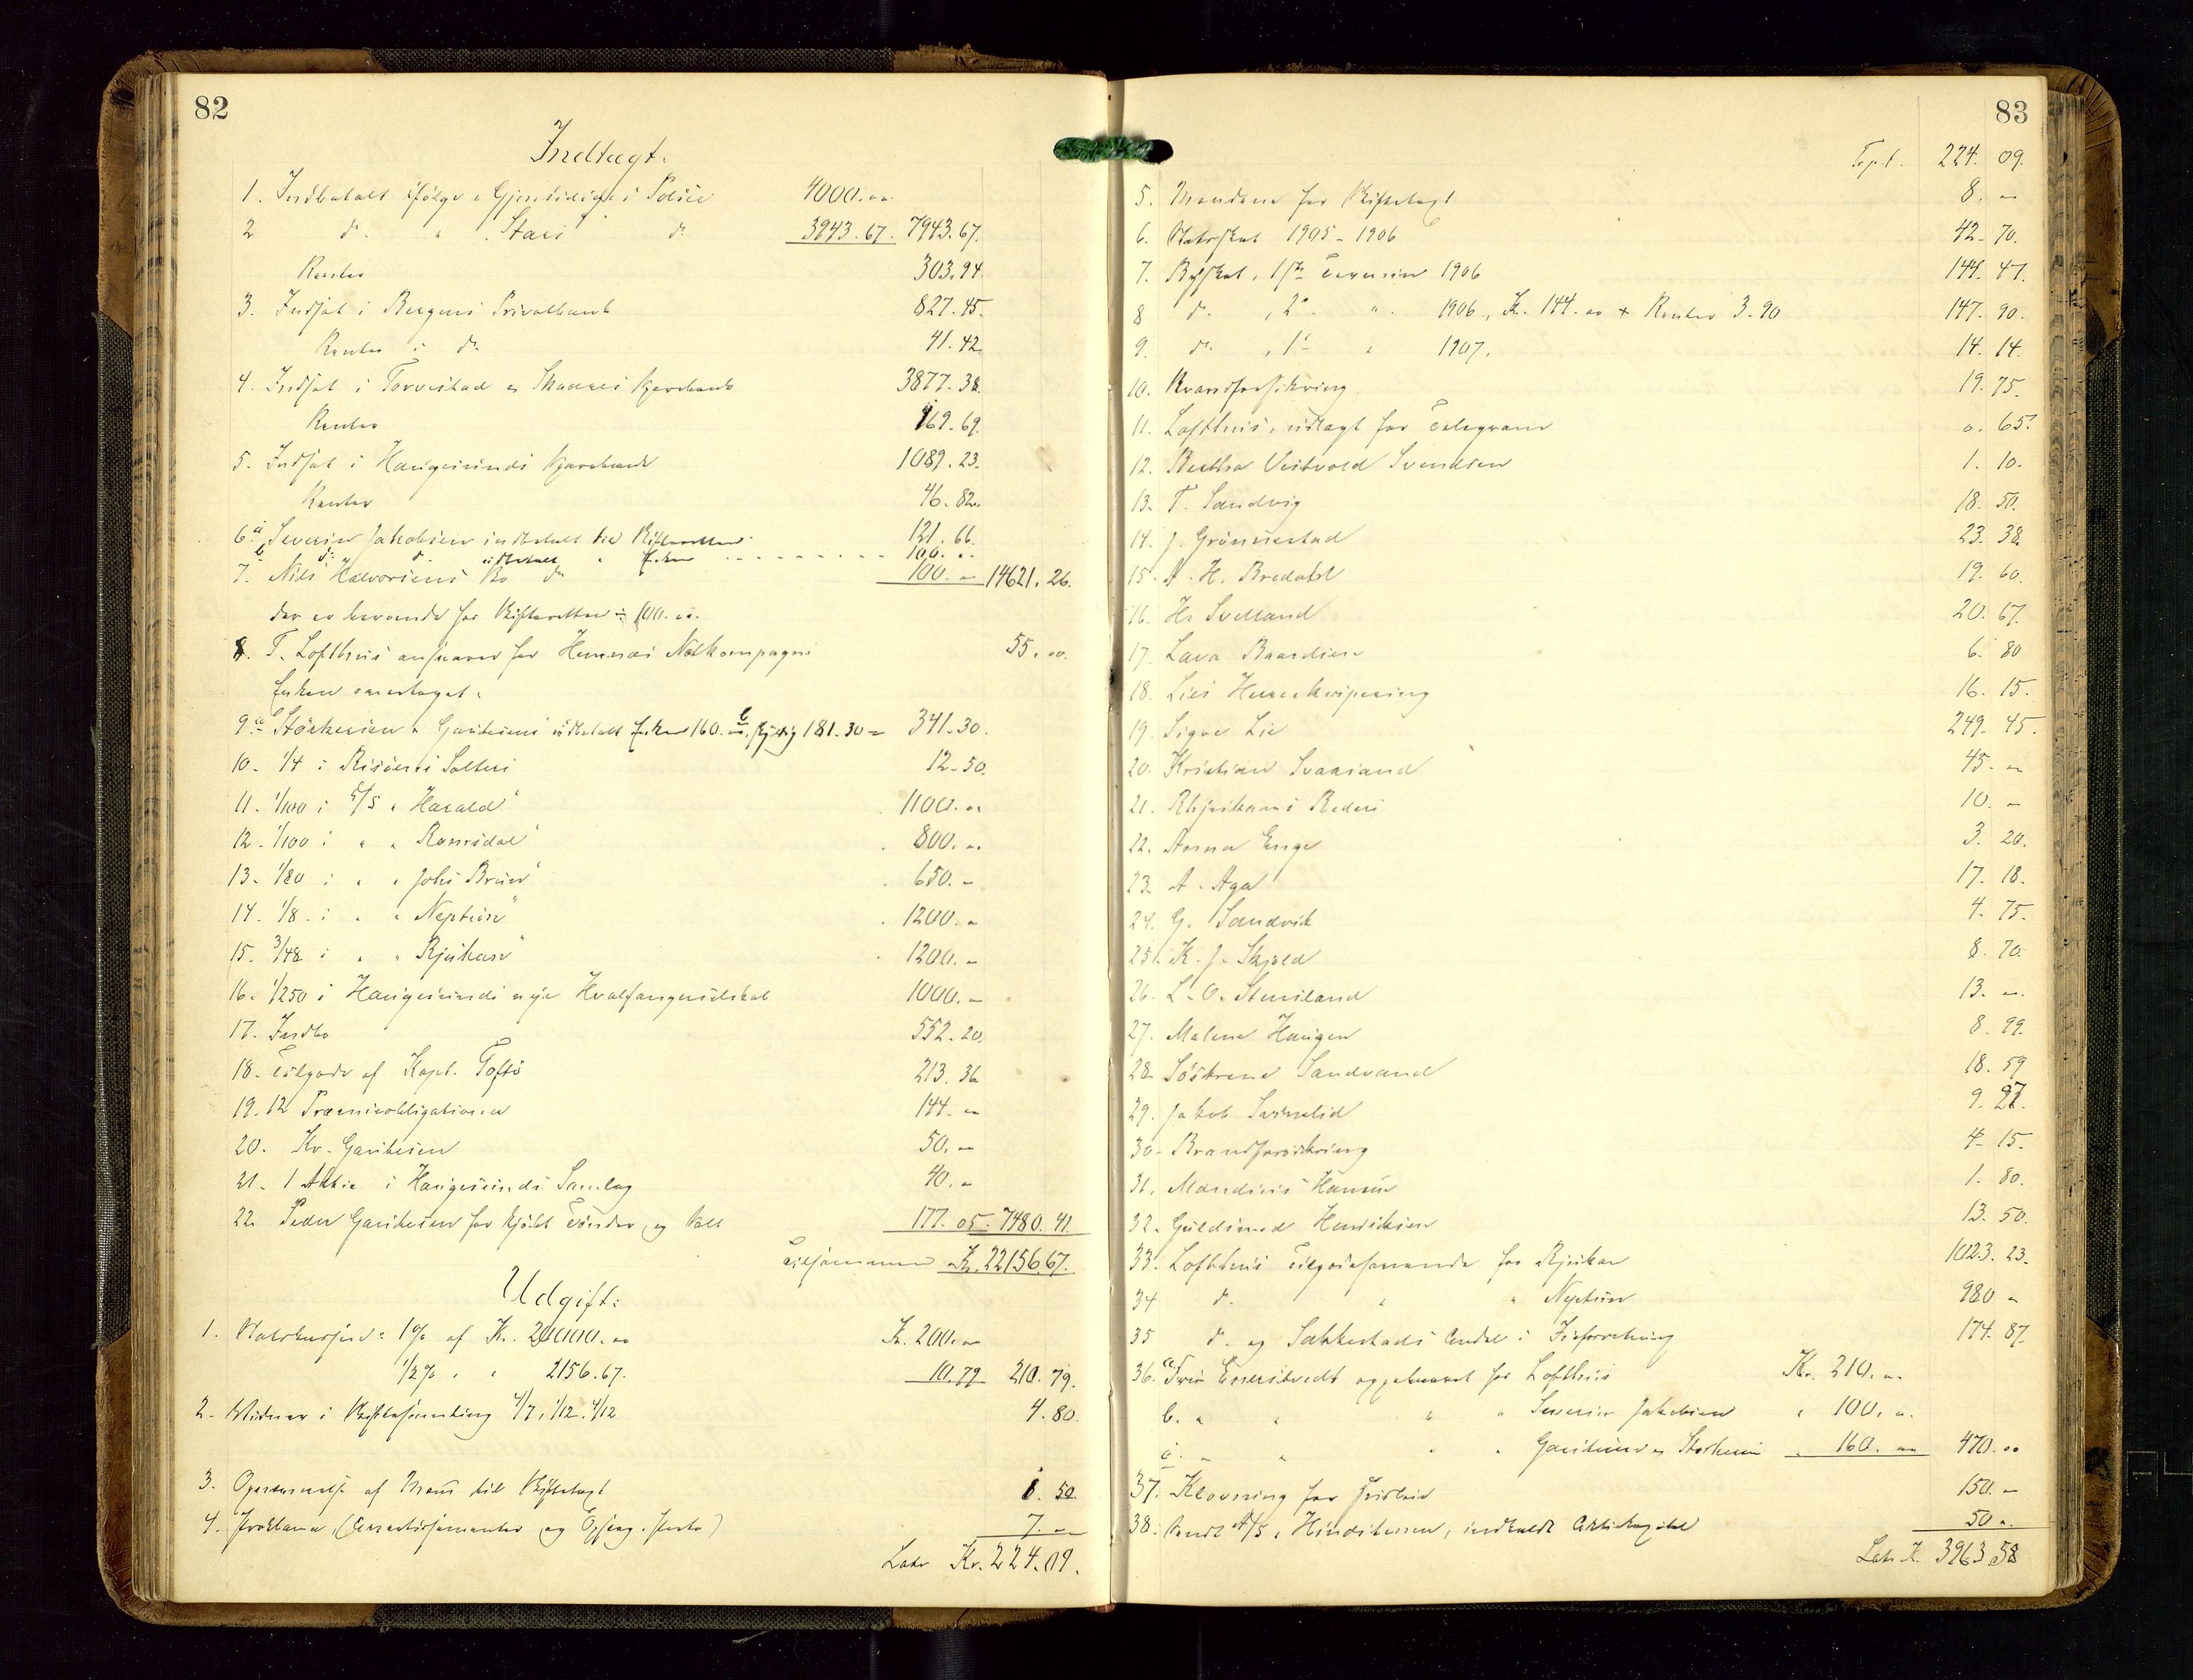 82
Indtægt.
1. Indbetalt ifølge "Gjensidige's Police 4000.00
2 do. " "Stari" do 3943.67. 7943.67.
Renter 303.94.
3. Indsat i Bergens Privatbank 827.45.
Renter i do. 41.42.
4. Indsat i Torvestad & Skaares Sparebank 3877.38.
Renter 169.69.
5. Indsat i Haugesunds Sparebank 1089.23.
Renter 46.82.
6 a Severin Jakobsen indbetalt til Skifteretten 121.66.
b do. " do. udbetalt " Enken 100. "
7. Nils Halvorsens Bo do 100. " 14621.26.
der er beroende for Skifteretten 100.00.
8. T. Lofthus ansvarer for Hemnæs Notkompagni 55.00.
Enken overtaget:
9 a Størkersen & Gautesens udbetalt Enken 160.00, b 181.30 = 341.30.
10. 1/4 i Risøens Salteri 12.50.
11. 1/100 i S/S "Harald" 1100.00
12. 1/100 i " " Romsdal" 800. "
13. 1/80 i " " Johs Brun" 650. -
14. 1/8 i " " Neptun" 1200. -
15. 3/48 i " " Rjukan" 1200. -
16. 1/250 i Haugesunds nye Hvalfangerselskab 1000. -
17. Indbo 552.20.
18. Tilgode af Kapt. Toftø 213.36
19. 12 Præmieobligationer 144. -
20. Kr. Gautesen 50. -
21. 1 Aktie i Haugesunds Samlag 40. -
22. Peder Gautesen for kjøbt Tønder og Salt 177.05. 7480.41.
Tilsammen Kr. 22156.67.
Udgift:
1. 1% af Kr. 20000.00 Kr. 200.00
1/2% " " 2156.67. 10.79 210.79.
2. Vidner i Skiftesamling 4/7, 1/12, 4/12 4.80.
3. Opnævnelse af Mænd til Skiftetagt 1.50.
4. Proklama, (Avertissementer og Porto) 7. -
Late Kr. 224.09.
83
Trpt. 224.09.
5. Mændene for Skiftetagt 8. -
6. Statsskat 1905-1906 42.70.
7. Byskat, 1ste Termin 1906 144.47.
8 do. , 2n " 1906, Kr. 144.00 + Renter 3.90 147.90.
9. do. , 1ste " 1907. 14.14.
10. Brandforsikring 19.75.
11. Lofthus, udlagt for Telegram 0.65.
12. Bertha Vestvold Svendsen 1.10.
13. T. Sandvig 18.50.
14. J. Grønnestad 23.38
15. A. H. Bredahl 19.60.
16. Hr Svelland 20.67.
17. Lava Baardsen 6.80
18. Lies Herreekvipering 16.15.
19. Sigve Lie 249.45.
20. Kristian Svaasand 45. -
21. Rhjukans Rederi 10. -
22. Anna Enge 3.20.
23. A. Aga 17.18.
24. G. Sandvik 4.75.
25. K. J. Skjold 8.70.
26. L. O. Stensland 13. -
27. Malene Haugen 8.99.
28. Søstrene Sandvand 18.59
29. Jakob Svinelid 9.27.
30. Brandforsikring 4.15.
31. Mandius Hansen 1.80.
32. Guldsmed Henriksen 13.50.
33. Lofthus Tilgodehavende for Rjukan 1023.23.
34 do. " " Neptun 980 -
35 do. og Sakkestads Andel i Isforretning 174.87.
36. a. oppebaaret for Lofthus Kr. 210. -
b. " " " " Severin Jakobsen " 100. -
c. " " " " Gautesen & Størkersen " 160. - 470.00
37. Klovning for 150. -
38. Sendt A/S "Hindstenen", indkaldt Aktiekapital 50 -
Late Kr. 3963.58